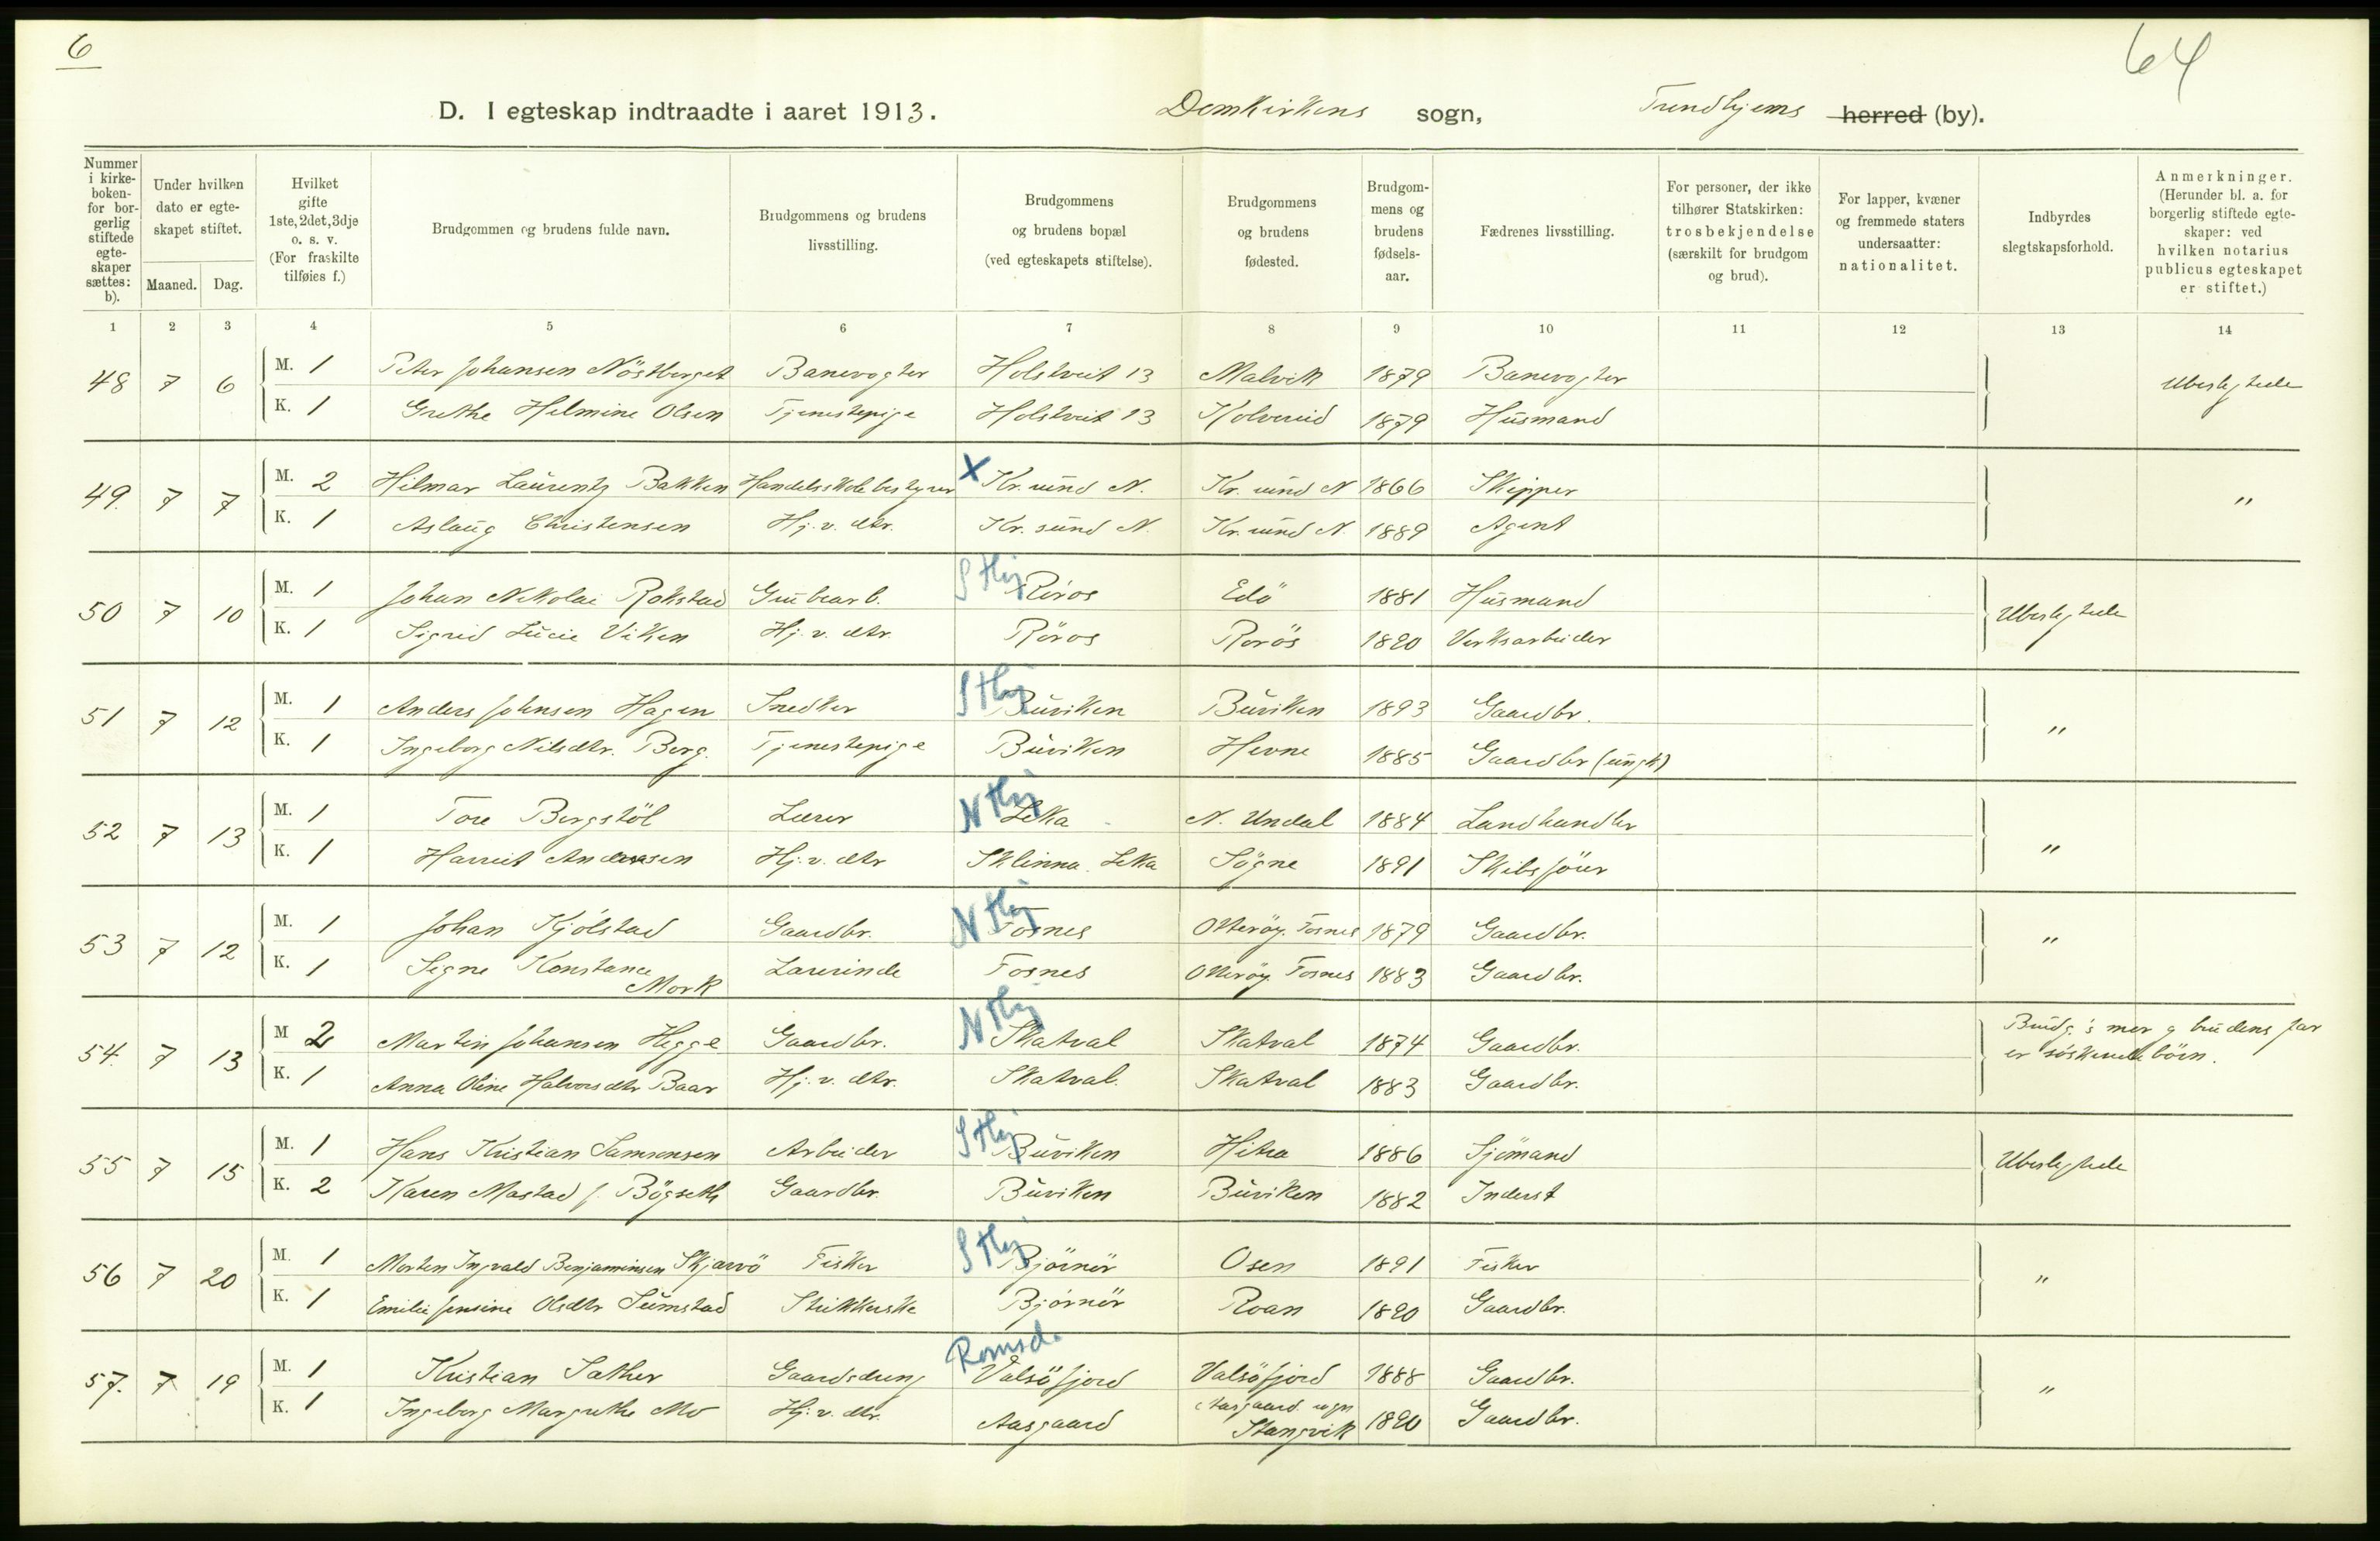 6
64
D. I egteskap indtraadte i aaret 1913. Domkirkens sogn, Trondhjems herred (by).
Nummer i kirke-boken- for bor-gerlig stiftede egte-skaper sættes: b).
Under hvilken dato er egte-skapet stiftet.
Maaned. Dag.
Hvilket gifte 1ste, 2det, 3dje o. s. v. (For fraskilte tilføies f.)
Brudgommen og brudens fulde navn.
Brudgommens og brudens livsstilling.
Brudgommens og brudens bopæl (ved egteskapets stiftelse).
Brudgommens og brudens fødested.
Brudgom-mens og brudens fødsels-aar.
Fædrenes livsstilling.
For personer, der ikke tilhører Statskirken: trosbekjendelse (særskilt for brudgom og brud).
For lapper, kvæner og fremmede staters undersaatter: nationalitet.
Indbyrdes slegtskapsforhold.
Anmerkninger. (Herunder bl. a. for borgerlig stiftede egte-skaper: ved hvilken notarius publicus egteskapet er stiftet.)
1 2 3 4 5 6 7 8 9 10 11 12 13 14
48 7 6 M. 1 Peter Johansen Nöstberget Banevogter Holstveit 13 Malvik 1879 Banevogter Ubeslegtede
K. 1 Grethe Helmine Olsen Tjenestepige Holstveit 13 Kolvereid 1879 Husmand
49. 7 7 M. 2 Hilmar Laurentz Bakken Handelsskolebestyrer X Kr.sund N. Kr.sund N 1866 Skipper "
K. 1 Aslaug Christensen Hj. v. dtr. Kr. sund N. Kr.sund N. 1889 Agent
50 7 10 M. 1 Johan Nikolai Rokstad Grubearb. S thj Röros Edö 1881 Husmand Ubeslegtede
K. 1 Sigrid Lucie Viken Hj. v. dtr. Röros Rorös 1890 Verksarbeider
51 7 12 M. 1 Anders Johnsen Hagen Snedker S thj Buviken Buviken 1893 Gaardbr. "
K. 1 Ingeborg Nilsdtr. Berg. Tjenestepige Buviken Hevne 1885 Gaardbr (ungk)
52 7 13 M. 1 Tore Bergstöl Lærer N thj Leka N. Undal 1884 Landhandler "
K. 1 Harriet Andersen Hj. v. dtr Sklinna. Leka Sögne 1891 Skibsförer
53 7 12 M. 1 Johan Kjölstad Gaardbr. N thj Fosnes Otterøy. Fosnes 1879 Gaardbr. "
K. 1 Signe Konstance Mork Lærerinde Fosnes Otterøy. Fosnes 1883 Gaardbr.
54. 7 13 M 2 Martin Johansen Hegge Gaardbr. N thj Skatval Skatval 1874 Gaardbr. Brudg.'s mor og brudens far er söskendebörn.
K. 1 Anna Oline Halvorsdtr Baar Hj. v. dtr. Skatval. Skatval 1883 Gaardbr.
55 7 15 M. 1 Hans Kristian Samsonsen Arbeider S thj Buviken Hitra 1886 Sjömand Ubeslegtede
K. 2 Karen Mastad f. Bögseth Gaardbr. Buviken Buviken 1882 Inderst
56 7 20 M. 1 Morten Ingvald Benjaminsen Skjærvö Fisker S thj Björnör Osen 1891 Fisker "
K. 1 Emilie Jensine Olsdtr Sumstad Strikkerske Björnör Roan 1890 Gaardbr.
57. 7 19 M. 1 Kristian Sæther Gaardsdreng Romsd. Valsöfjord Valsöfjord 1888 Gaardbr. "
K. 1 Ingeborg Margrethe Mo Hj. v. dtr. Aasgaard Aasgaard sogn Stangvik 1890 Gaardbr.